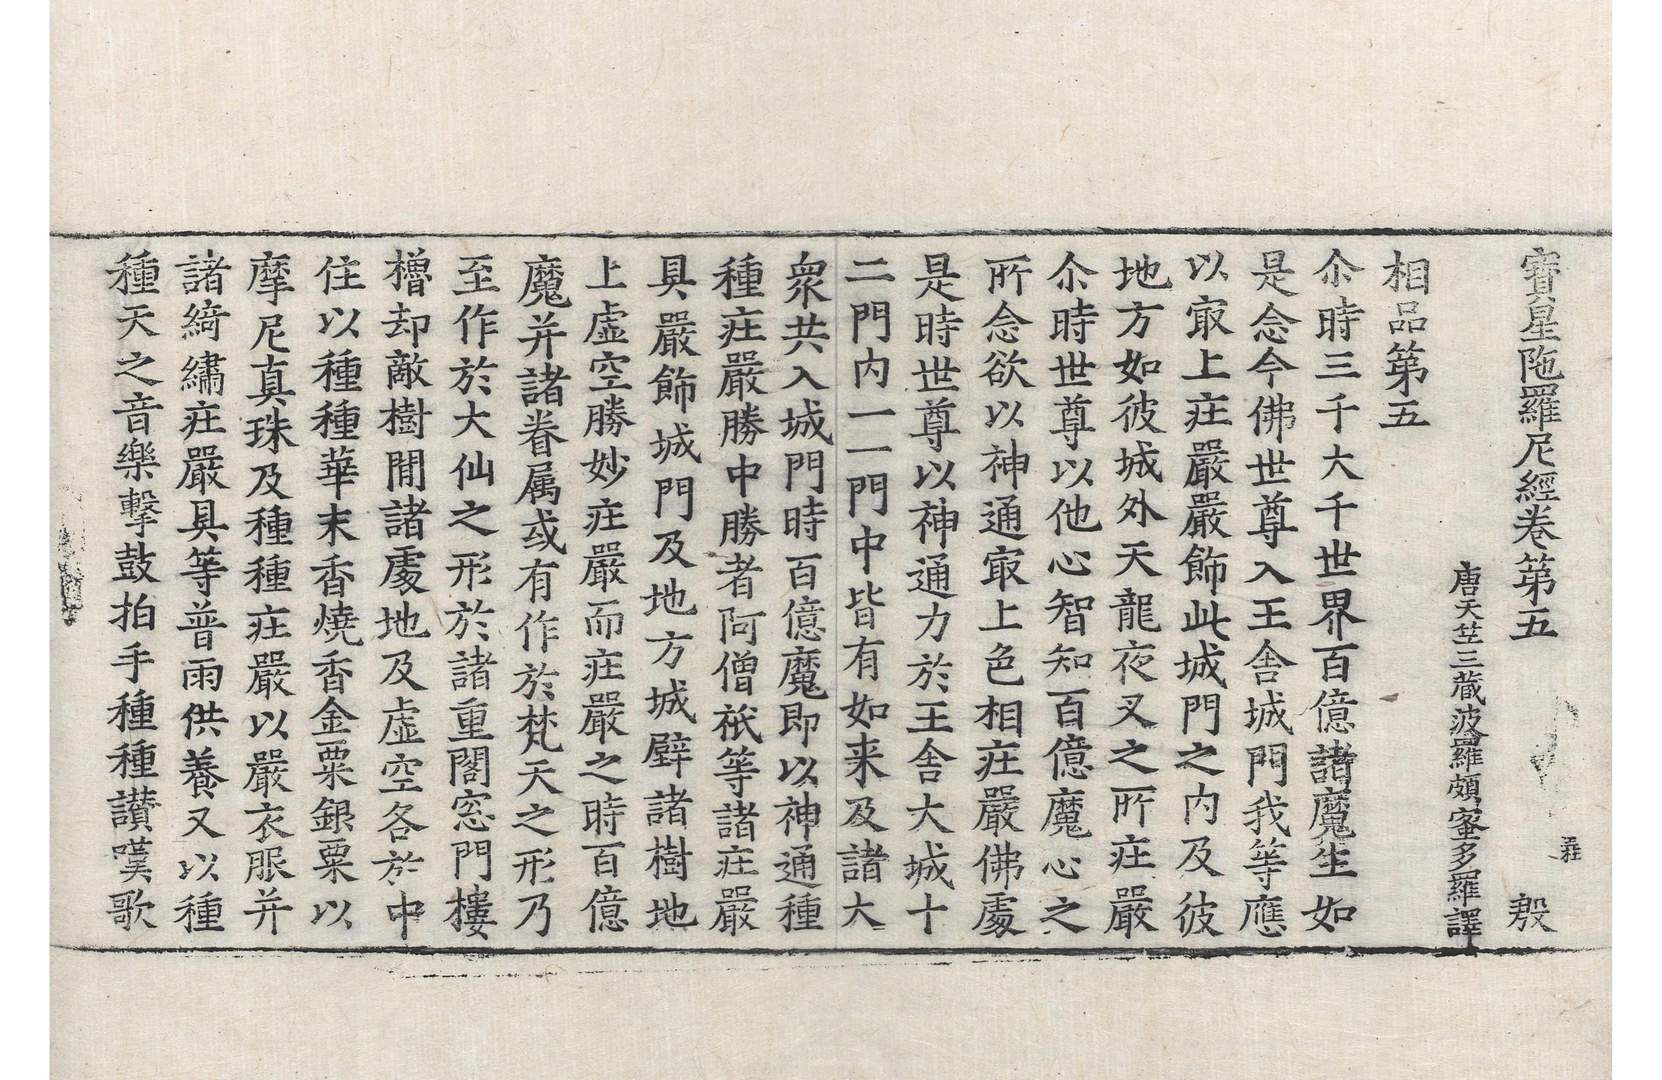 寶星陁羅尼經卷第五　殷
唐天竺三蔵波羅頗蜜多羅譯
相品第五
尒時三千大千世界百億諸魔生如
是念今佛世尊入王舎城門我等應
以㝡上庄嚴嚴飾此城門之内及彼
地方如彼城外天龍夜叉之所庄嚴
尒時世尊以他心智知百億魔心之
所念欲以神通㝡上色相庄嚴佛處
是時世尊以神通力於王舎大城十
二門内一一門中皆有如来及諸大
衆共入城門時百億魔即以神通種
種庄嚴勝中勝者阿僧祇等諸庄嚴
具嚴飾城門及地方城壁諸樹地
上虛空勝妙庄嚴而庄嚴之時百億
魔并諸眷属或有作於梵天之形乃
至作於大仙之形於諸重閣窓門樓
櫓却敵樹閒諸處地及虛空各於中
住以種種華末香燒香金粟銀粟以
摩尼真珠及種種庄嚴以嚴衣服并
諸綺繡庄嚴具等普雨供養又以種
種天之音樂擊鼓拍手種種讃嘆歌